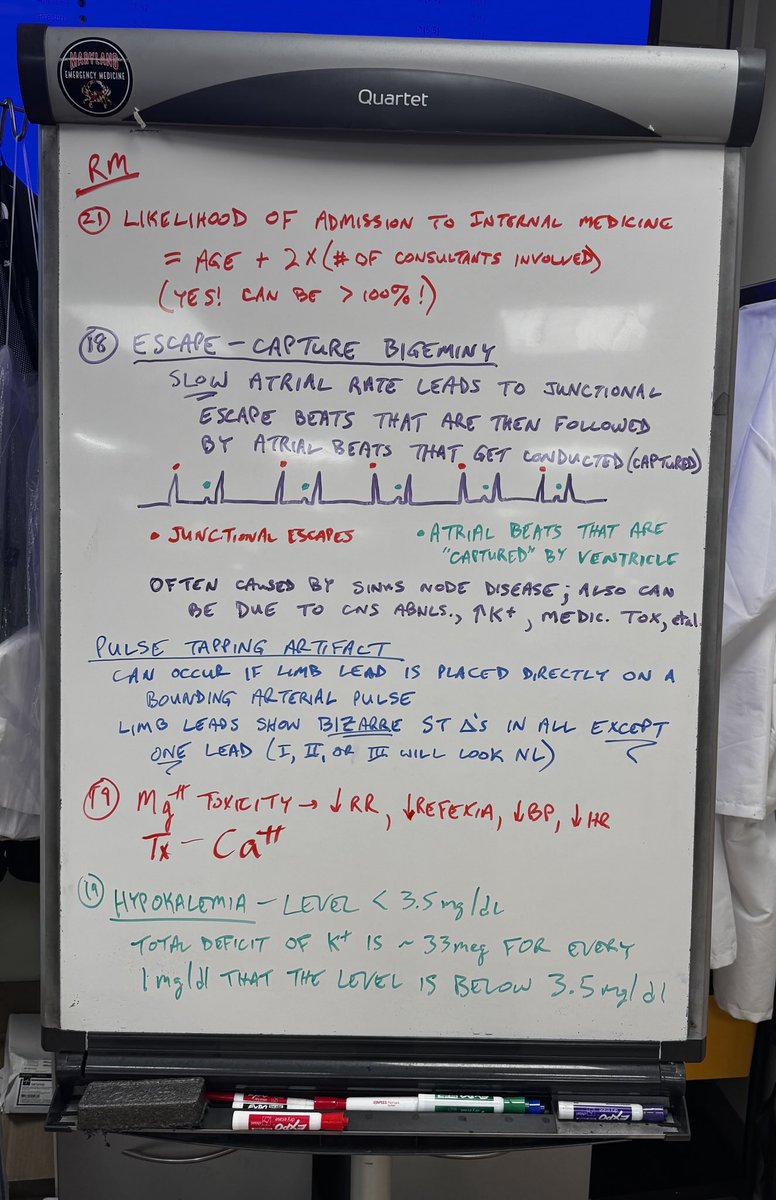 MARYLAND
EMERGENCY MEDICINE
Quartet
RM
21 LIKELIHOOD OF ADMISSION TO INTERNAL MEDICINE
= AGE + 2 x (# OF CONSULTANTS INVOLVED)
(YES! CAN BE > 100%!)
18 ESCAPE - CAPTURE BIGEMINY
SLOW ATRIAL RATE LEADS TO JUNCTIONAL
ESCAPE BEATS THAT ARE THEN FOLLOWED
BY ATRIAL BEATS THAT GET CONDUCTED (CAPTURED)
• JUNCTIONAL ESCAPES
• ATRIAL BEATS THAT ARE
"CAPTURED" BY VENTRICLE
OFTEN CAUSED BY SINUS NODE DISEASE; ALSO CAN
BE DUE TO CNS ABNLS., ↑K+, MEDIC. TOX, etal.
PULSE TAPPING ARTIFACT
CAN OCCUR IF LIMB LEAD IS PLACED DIRECTLY ON A
BOUNDING ARTERIAL PULSE
LIMB LEADS SHOW BIZARRE ST Δ's IN ALL EXCEPT
ONE LEAD (I, II, OR III WILL LOOK NL)
19 Mg++ TOXICITY → ↓RR, ↓REFEXIA, ↓BP, ↓HR
Tx - Ca++
19 HYPOKALEMIA - LEVEL < 3.5 mg/dl
TOTAL DEFICIT OF K+ IS ~ 33 meq FOR EVERY
1 mg/dl THAT THE LEVEL IS BELOW 3.5 mg/dl
EXPO
EXPO